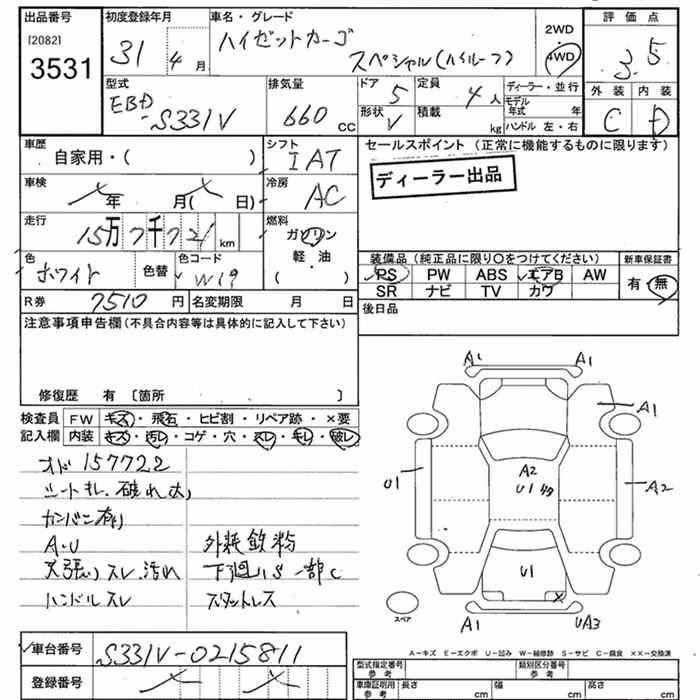 出品番号 初度登録年月 車名・グレード 評価点
[2082] 31年 4月 ハイゼットカーゴ 2WD 3.5
3531 スペシャル(ハイルーフ) 4WD
外装 内装
型式 排気量 ドア 定員 ディーラー・並行
EBD-S331V 660 CC 5 4人 モデル年式 年 C D
形状 V 積載 kg ハンドル 左・右
車歴 シフト セールスポイント (正常に機能するものに限ります)
自家用・( ) IAT
ディーラー出品
車検 冷房
年 月( 日) AC
走行 燃料
15万7千721 km ガソリン
軽・油
( )
色 色コード 装備品(純正品に限り〇をつけてください) 新車保証書
ホワイト 色替 W19 PS PW ABS エアB AW 有・無
SR ナビ TV カワ
R券 7510円 名変期限 月 日 後日品
注意事項申告欄(不具合内容等は具体的に記入して下さい)
修復歴 有 〔箇所 〕
検査員 FW キズ・飛石・ヒビ割・リペア跡・×要
記入欄 内装 キズ・汚レ・コゲ・穴・スレ・キレ・破レ
A1 A1
A1
U1 A2
A2
U1
U1
A1 UA3
スペア
オド157722
シートキレ.破れ大
カンバン有り
A.U 外装鉄粉
天張りスレ.汚れ 下廻りS一部C
ハンドルスレ スタットレス
A-キズ E-エクボ U-凹み W-補修跡 S-サビ C-腐食 ××-交換済
車台番号 S331V-0215811
登録番号
型式指定番号 参考 類別区分番号 参考
車庫証明用 参考 長さ cm 幅 cm 高さ cm